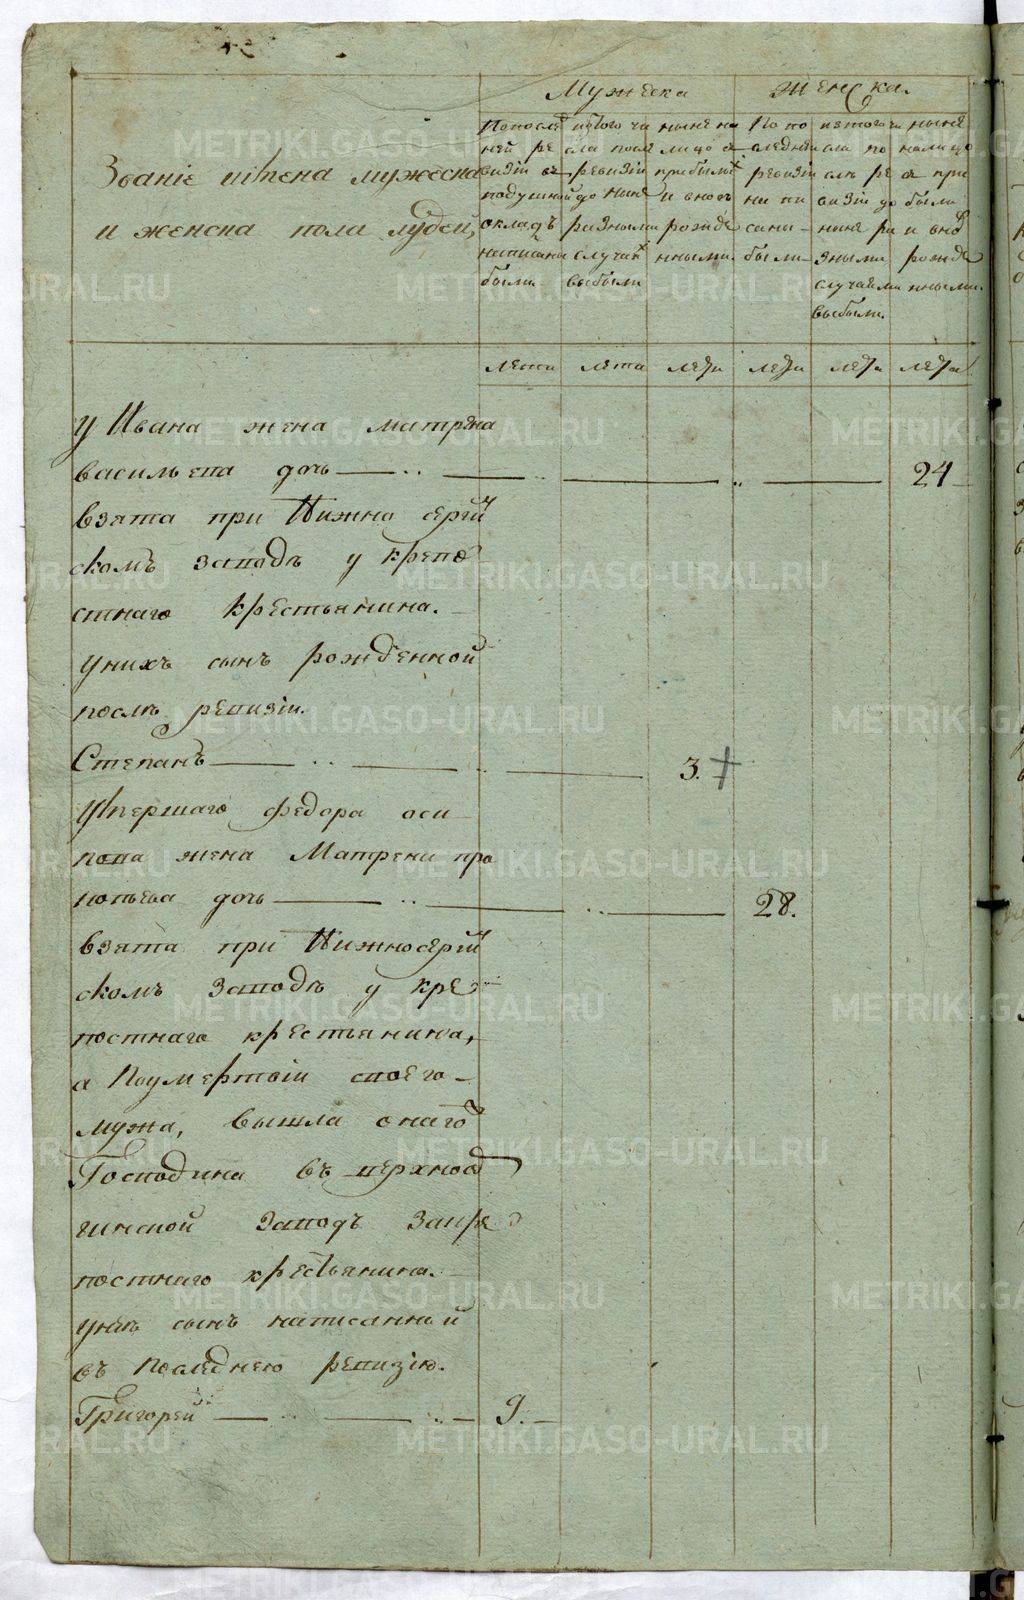 Мужеска
Женска.
Званіе имена мужеска
и женска пола людей,
По после
дней ре
визіи въ
подушной
окладъ
написаны
были
изтого чи
сла после
ревизіи
до ныне
разными
случаи
выбыли
ныне на
лицо съ
прибылы
и вновь
рожде
нными.
По по
следней
ревизіи
написаны
были
изтого чи
сла по
слѣ ре
визіи до
ныне ра
зными
случаями
выбыли.
ныне
налицо
съ при
были
и вно
рожде
нными.
лета лета лета лета лета лета
у Ивана жена матрена
васильева дочь 24
взята при Нижно серги
скомъ заводѣ у крепо
стнаго крестьянина.
унихъ сынъ рожденной
послѣ ревизіи.
Степанъ 3.
Умершаго Федора оси
пова жена Матрени про
копьева дочь 28.
взята при Нижносерги
скомъ заводѣ у кре
постнаго крестьянина,
а Поумертвіи своего
мужа, вышла онаго
Господина въ верхнов
гинской заводъ закре
постнаго крестьянина.
унѣе сынъ написанный
въ последнею ревизію.
Григорей 9.
METRIKI.GASO-URAL.RU